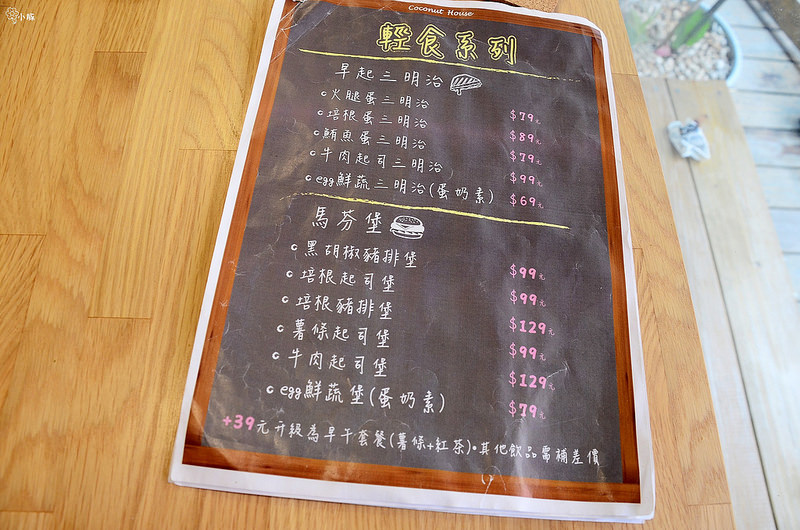 小腹
Coconut House
輕食系列
早起三明治
火腿蛋三明治 $79元
培根蛋三明治 $89元
鮪魚蛋三明治 $79元
牛肉起司三明治 $99元
egg鮮蔬三明治(蛋奶素) $69元
馬芬堡
黑胡椒豬排堡 $99元
培根起司堡 $99元
培根豬排堡 $129元
薯條起司堡 $99元
牛肉起司堡 $129元
egg鮮蔬堡(蛋奶素) $79元
+39元升級為早午套餐(薯條+紅茶)•其他飲品需補差價